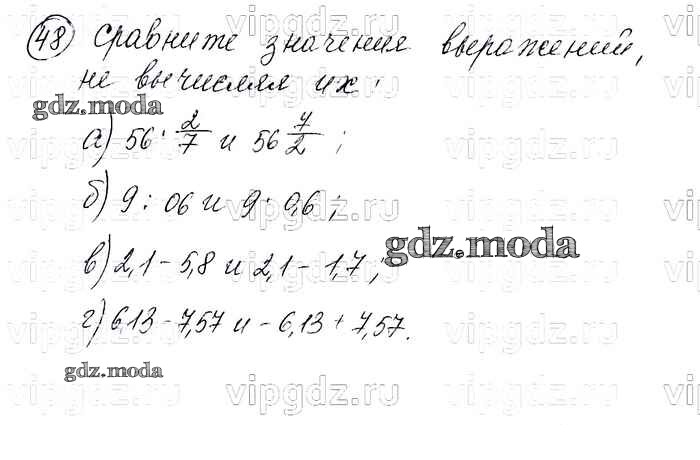 48 Сравните значения выражений,
не вычисляя их.
gdz.moda
а) 56 · 2/7 и 56 7/2 ;
б) 9 : 06 и 9 · 0,6 ;
в) 2,1 - 5,8 и 2,1 - 1,7 ;
gdz.moda
г) 6,13 - 7,57 и - 6,13 + 7,57.
gdz.moda
vipgdz.ru vipgdz.ru vipgdz.ru
vipgdz.ru vipgdz.ru vipgdz.ru
vipgdz.ru vipgdz.ru vipgdz.ru
vipgdz.ru vipgdz.ru vipgdz.ru
vipgdz.ru vipgdz.ru vipgdz.ru